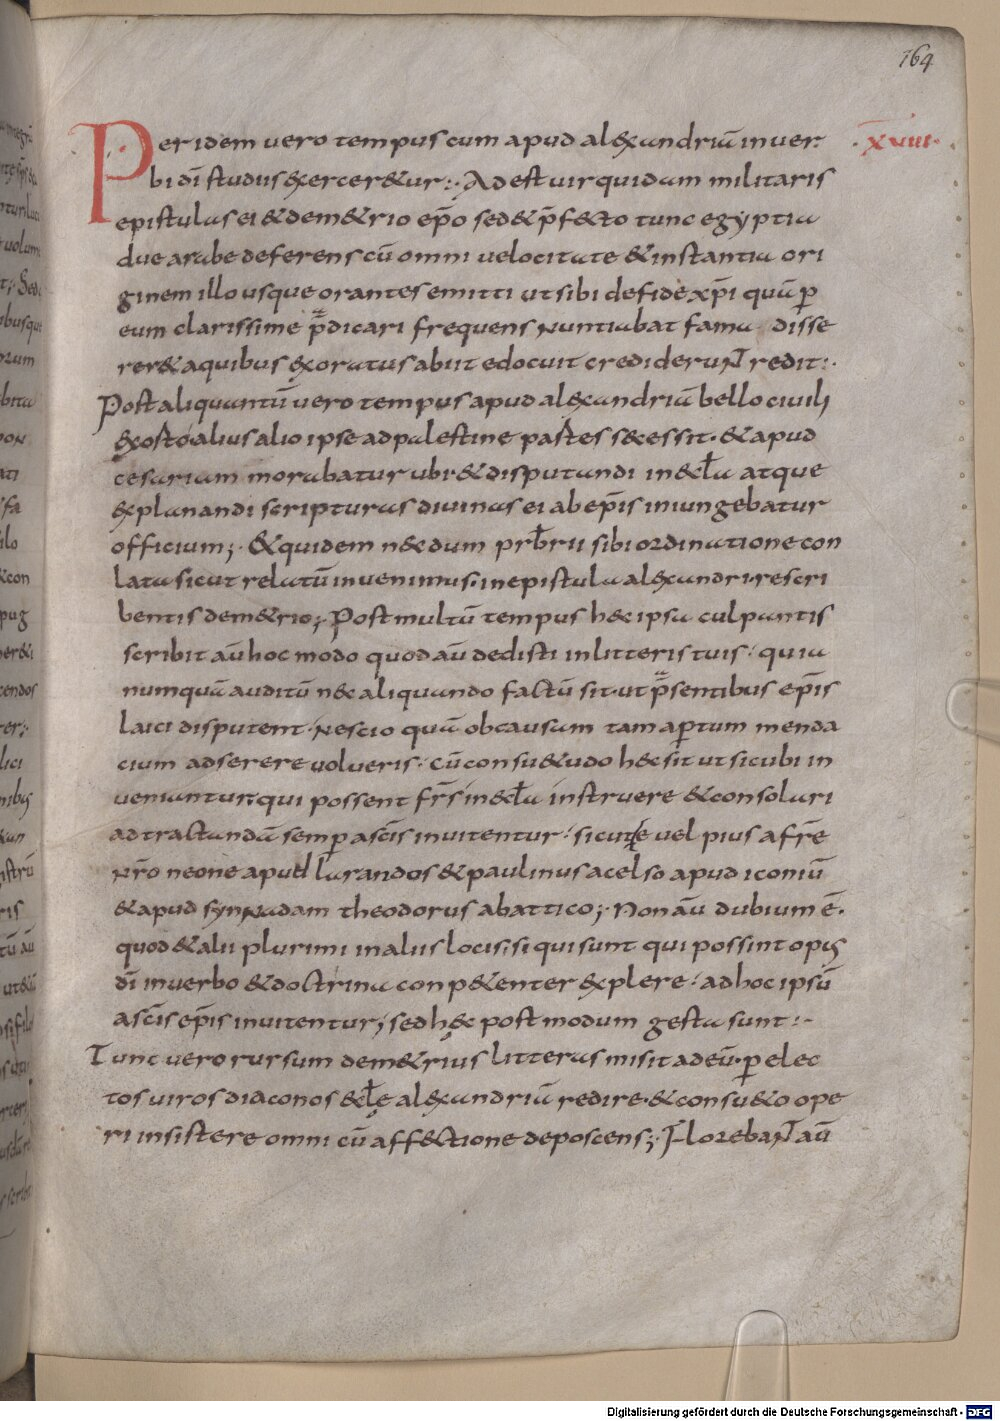 164
Per idem vero tempus cum apud alexandriā in ver
· xviiii ·
bi dī studiis exerceretur:· Adest vir quidam militaris
epistulas ei & dem&rio ep̄o sed & p̄f&cto tunc egyptia
due arabe deferens cū omni velocitate & instantia ori
ginem illo usque orantes emitti ut sibi de fide xp̄i quā p̄
eum clarissime p̄dicari frequens nuntiabat fama disse
rer& a quibus exoratus abiit edocuit crediderunt redit:·
Post aliquantū vero tempus apud alexandriā bello civili
exosto alius alio ipse ad palestine partes secessit· & apud
cesariam morabatur ubi & disputandi in eccła atque
explanandi scripturas divinas ei ab ep̄is iniungebatur
officium; & quidem necdum prb̄rii sibi ordinatione con
lata sicut relatū invenimus· in epistula alexandri· rescri
bentis dem&rio; Post multū tempus hec ipsa culpantis
scribit aū hoc modo quod aū dedisti in litteris tuis· quia
numquā auditū nec aliquando factū sit· ut p̄sentibus ep̄is
laici disputent· nescio quā ob causam tam apertum menda
cium adserere volueris· cū consu&udo hec sit ut sicubi in
veniantur· qui possent fr̄s in eccła instruere & consolari
ad tractandā semp a sc̄is invitentur· sicut e vel pius a fr̄e
nr̄o neone apud larandos & paulinus a celso apud iconiū
& apud synnadam theodorus ab attico; Non aū dubium ē·
quod & alii plurimi in aliis locis· si qui sunt qui possint opus
dī in verbo & doctrina conp&enter explere· ad hoc ipsū
a sc̄is ep̄is invitentur; sed hęc postmodum gesta sunt:·
Tunc vero rursum dem&rius litteras misit ad eū· p elec
tos viros diaconos eccłę alexandriā redire· & consu&o ope
ri insistere omni cū aff&ctione deposcens; Florebant aū
Digitalisierung gefördert durch die Deutsche Forschungsgemeinschaft - DFG